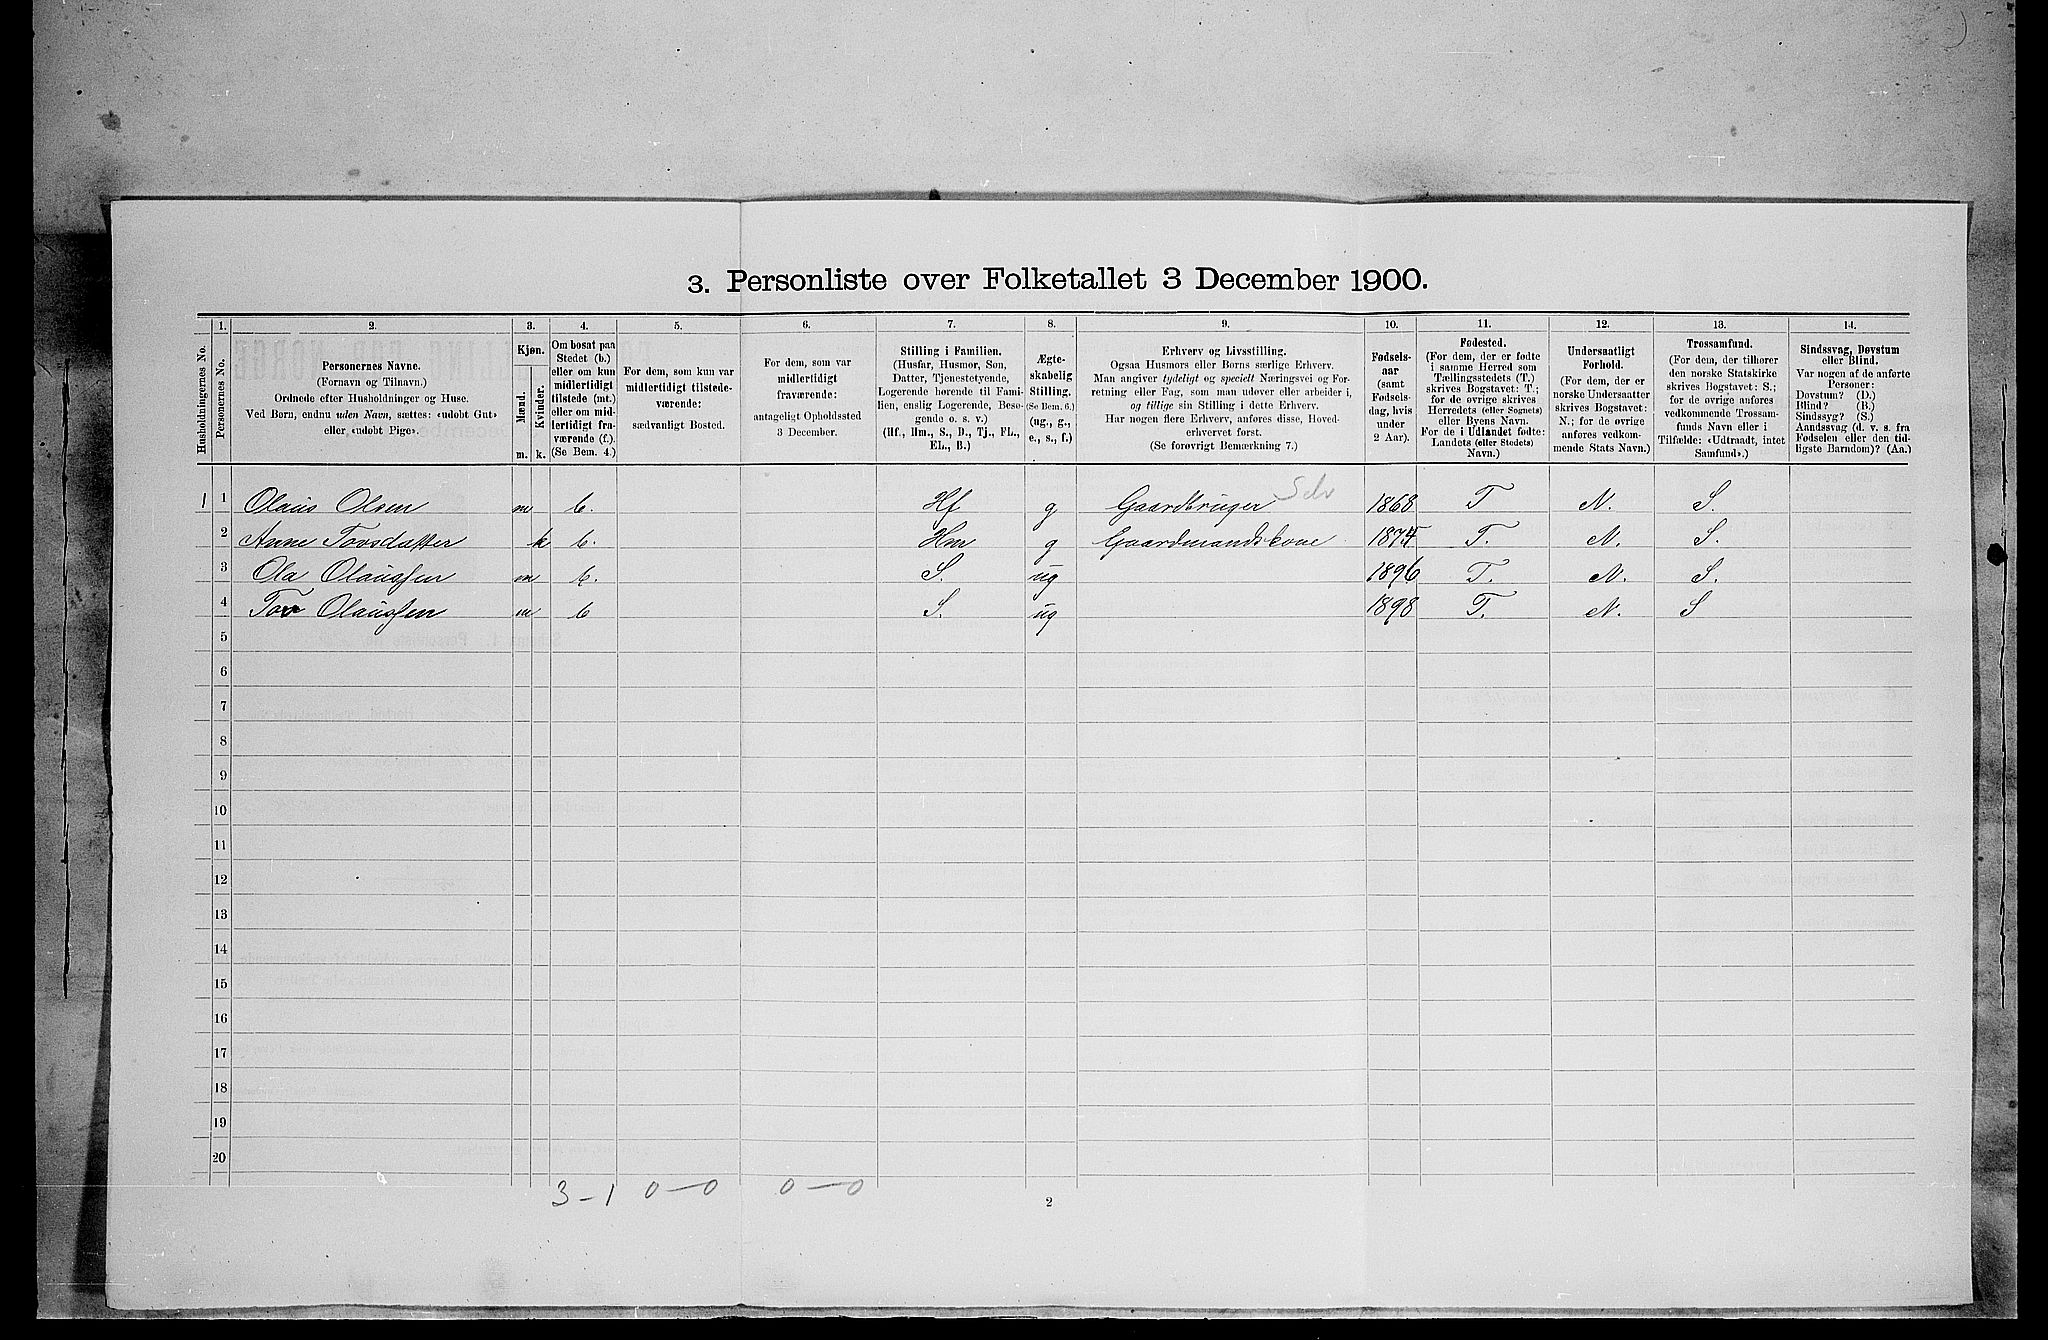 3. Personliste over Folketallet 3 December 1900.
1. 2. 3. 4. 5. 6. 7. 8. 9. 10. 11. 12. 13. 14.
Husholdningernes No.
Personernes No.
Personernes Navne.
(Fornavn og Tilnavn.)
Ordnede efter Husholdninger og Huse.
Ved Børn, endnu uden Navn, sættes: «udøbt Gut»
eller «udøbt Pige».
Kjøn.
Mænd.
Kvinder.
m. k.
Om bosat paa
Stedet (b.)
eller om kun
midlertidigt
tilstede (mt.)
eller om mid-
lertidigt fra-
værende (f.).
(Se Bem. 4.)
For dem, som kun var
midlertidigt tilstede-
værende:
sædvanligt Bosted.
For dem, som var
midlertidigt
fraværende:
antageligt Opholdssted
3 December.
Stilling i Familien.
(Husfar, Husmor, Søn,
Datter, Tjenestetyende,
Logerende hørende til Fami-
lien, enslig Logerende, Besø-
gende o. s. v.)
(Hf., Hm., S., D., Tj., FL.,
EL., B.)
Ægte-
skabelig
Stilling.
(Se Bem. 6.)
(ug., g.,
e., s., f.)
Erhverv og Livsstilling.
Ogsaa Husmors eller Børns særlige Erhverv.
Man angiver tydeligt og specielt Næringsvei og For-
retning eller Fag, som man udøver eller arbeider i,
og tillige sin Stilling i dette Erhverv.
Har nogen flere Erhverv, anføres disse, Hoved-
erhvervet først.
(Se forøvrigt Bemærkning 7.)
Fødsels-
aar
(samt
Fødsels-
dag, hvis
under
2 Aar).
Fødested.
(For dem, der er fødte
i samme Herred som
Tællingsstedets (T.)
skrives Bogstavet: T.;
for de øvrige skrives
Herredets (eller Sognets)
eller Byens Navn.
For de i Udlandet fødte:
Landets (eller Stedets)
Navn.)
Undersaatligt
Forhold.
(For dem, der er
norske Undersaatter
skrives Bogstavet:
N.; for de øvrige
anføres vedkom-
mende Stats Navn.)
Trossamfund.
(For dem, der tilhører
den norske Statskirke
skrives Bogstavet: S.;
for de øvrige anføres
vedkommende Trossam-
funds Navn eller i
Tilfælde: «Udtraadt, intet
Samfund».)
Sindssvag, Døvstum
eller Blind.
Var nogen af de anførte
Personer:
Døvstum? (D.)
Blind? (B.)
Sindssyg? (S.)
Aandssvag (d. v. s. fra
Fødselen eller den tid-
ligste Barndom)? (Aa.)
1 1 Olaus Olsen m b. Hf g Gaardbruger Selv 1868 T N. S.
2 Anne Tovsdatter k b. Hm g Gaardmandskone 1874 T. N. S.
3 Ola Olaussen m b. S. ug 1896 T. N. S.
4 Tov Olaussen m b S. ug 1898 T. N. S
5
6
7
8
9
10
11
12
13
14
15
16
17
18
19
20
3-1 0-0 0-0
2